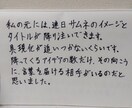 私の元には、連日サムネのイメージと
タイトルが降り注いできます。
具現化が追いつかないくらいです。
降ってくるアイデアの数だけ、その向こ
うに、言葉を届ける相手がいるのだと
思いました。